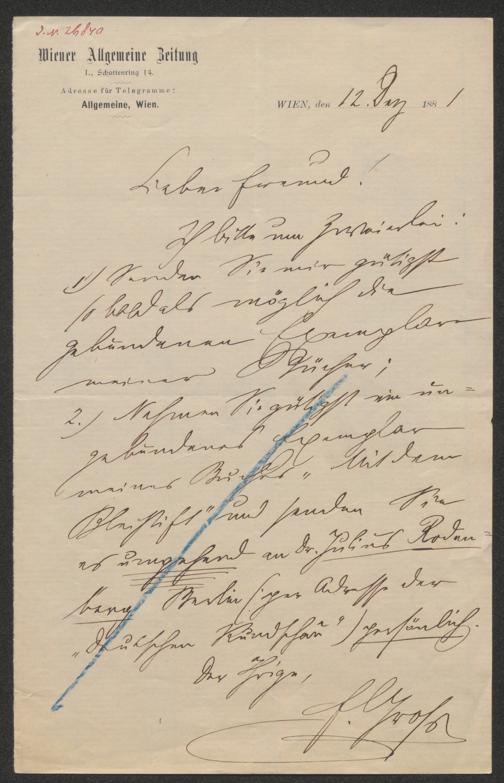 J.N. 26840
Wiener Allgemeine Zeitung
I., Schottenring 14.
Adresse für Telegramme:
Allgemeine, Wien.
WIEN, den 12. Dez 1881
Lieber Freund!
Ich bitte um Zweierlei:
1.) Senden Sie mir gütigst
so bald als möglich die
gebundenen Exemplare
meiner Bücher;
2.) Nehmen Sie gütigst ein un=
gebundenes Exemplar
meines Buches "Mit dem
Bleistift" und senden Sie
es umgehend an Dr. Julius Roden=
berg Berlin (per Adresse der
"Deutschen Rundschau") persönlich.
Der Ihrige,
F. Groß